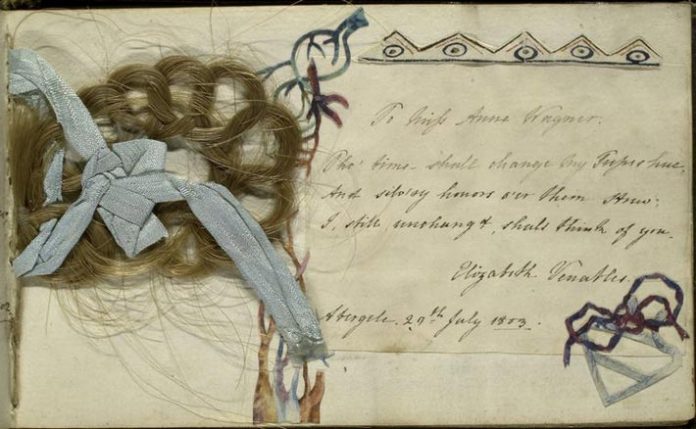 To Miss Anne Wagner.
Tho' time shall change My Tresses hue,
And silv'ry honors o'er them strew:
I, still unchang'd, shall think of you.
Elizabeth Venables.
Abergele. 29th July 1803.